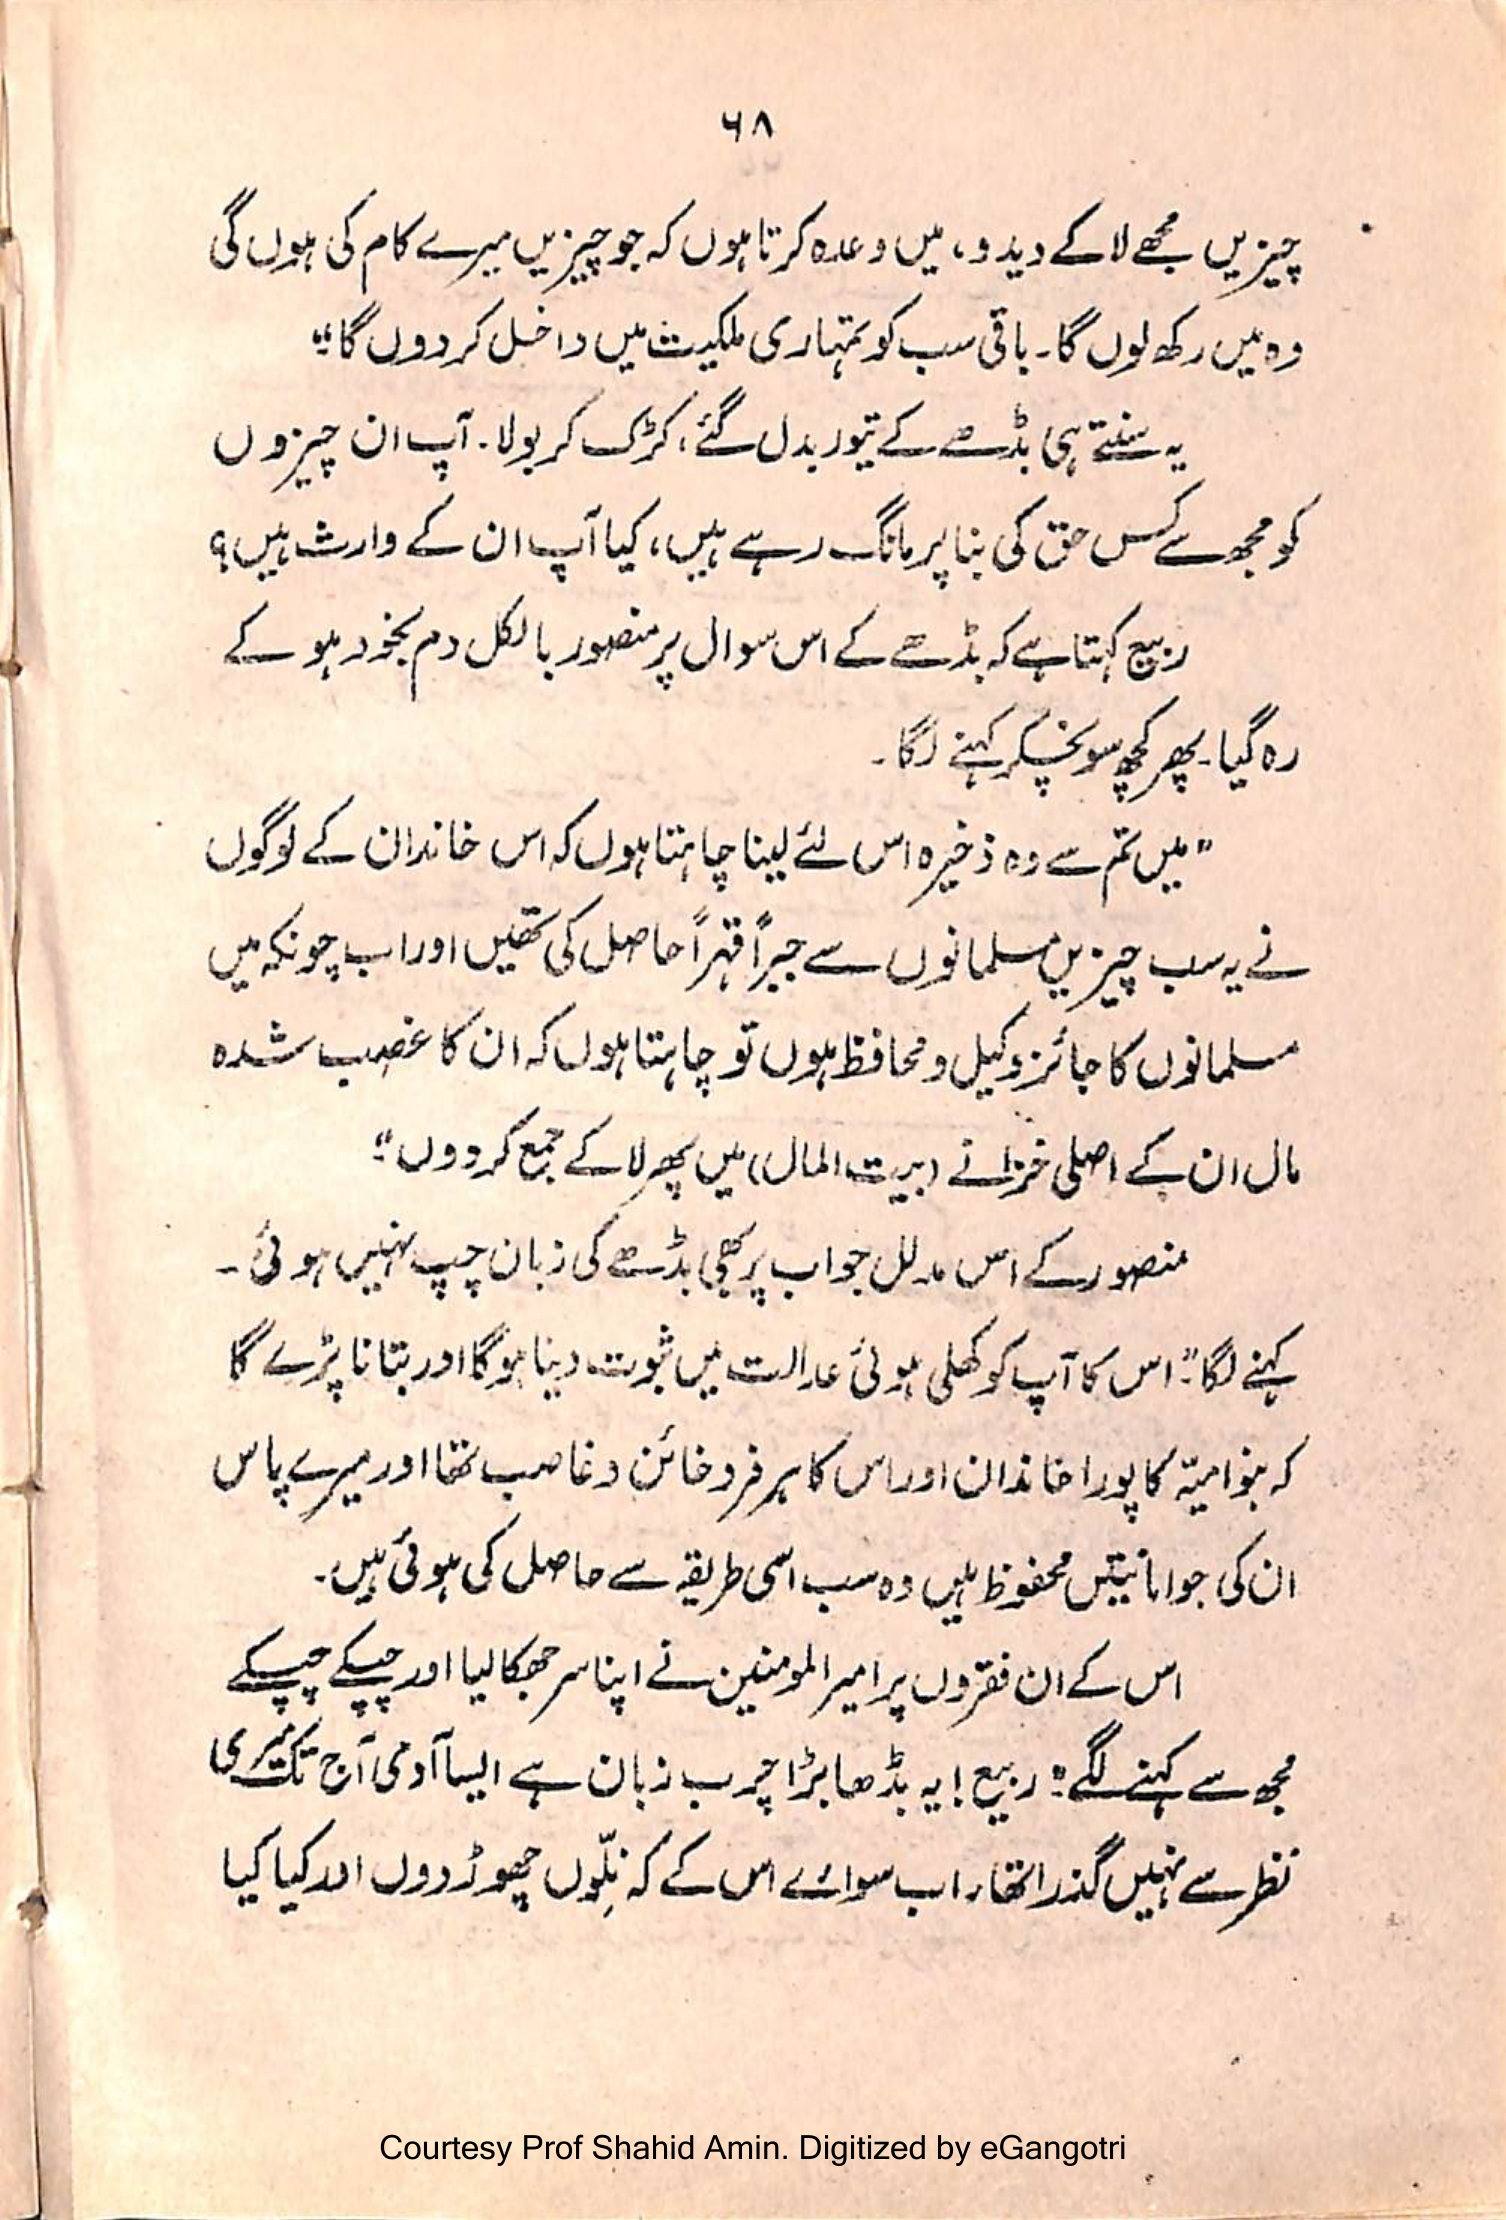 ۶۸
چیزیں مجھے لا کے دیدو، میں وعدہ کرتا ہوں کہ جو چیزیں میرے کام کی ہوں گی
وہ میں رکھ لوں گا۔ باقی سب کو تمہاری ملکیت میں داخل کر دوں گا۔“
یہ سنتے ہی بڈھے کے تیور بدل گئے، کڑک کر بولا۔ آپ ان چیزوں
کو مجھ سے کس حق کی بنا پر مانگ رہے ہیں، کیا آپ ان کے وارث ہیں؟
ربیع کہتا ہے کہ بڈھے کے اس سوال پر منصور بالکل دم بخود ہو کے
رہ گیا۔ پھر کچھ سونچکر کہنے لگا۔
”میں تم سے وہ ذخیرہ اس لئے لینا چاہتا ہوں کہ اس خاندان کے لوگوں
نے یہ سب چیزیں مسلمانوں سے جبراً قہراً حاصل کی تھیں اور اب چونکہ میں
مسلمانوں کا جائز وکیل و محافظ ہوں تو چاہتا ہوں کہ ان کا غصب شدہ
مال ان کے اصلی خزانے (بیت المال) میں پھر لا کے جمع کر دوں۔“
منصور کے اس مدلل جواب پر بھی بڈھے کی زبان چپ نہیں ہوئی۔
کہنے لگا۔” اس کا آپ کو کھلی ہوئی عدالت میں ثبوت دینا ہوگا اور بتانا پڑے گا
کہ بنو امیّہ کا پورا خاندان اور اس کا ہر فرد خائن و غاصب تھا اور میرے پاس
ان کی جو امانیتں محفوظ ہیں وہ سب اسی طریقہ سے حاصل کی ہوئی ہیں۔
اس کے ان فقروں پر امیر المومنین نے اپنا سر جھکا لیا اور چپکے چپکے
مجھ سے کہنے لگے:” ربیع! یہ بڈھا بڑا چرب زبان ہے ایسا آدمی آج تک میری
نظر سے نہیں گذرا تھا۔ اب سوائے اس کے کہ چھوڑ دوں اور کیا کیا
Courtesy Prof Shahid Amin. Digitized by eGangotri